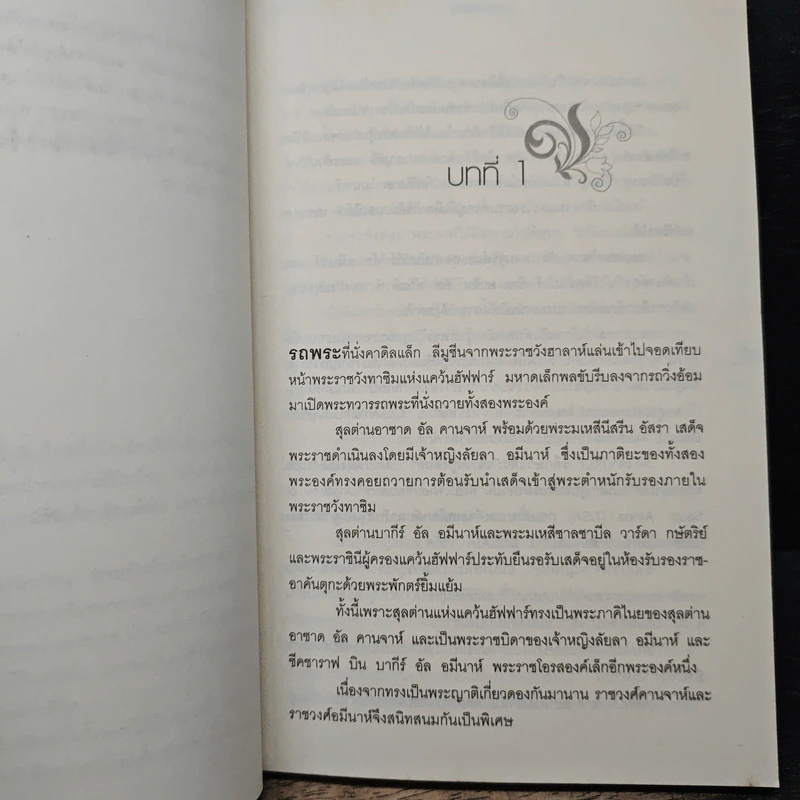 บทที่ 1
รถพระที่นั่งคาดิลแล็ก ลีมูซีนจากพระราชวังฮาลาห์แล่นเข้าไปจอดเทียบ
หน้าพระราชวังทาซิมแห่งแคว้นฮัฟฟาร์ มหาดเล็กพลขับรีบลงจากรถวิ่งอ้อม
มาเปิดพระทวารรถพระที่นั่งถวายทั้งสองพระองค์
สุลต่านอาซาด อัล คานจาห์ พร้อมด้วยพระมเหสีนีสรีน อัสรา เสด็จ
พระราชดำเนินลงโดยมีเจ้าหญิงลัยลา อมีนาห์ ซึ่งเป็นภาติยะของทั้งสอง
พระองค์ทรงคอยถวายการต้อนรับนำเสด็จเข้าสู่พระตำหนักรับรองภายใน
พระราชวังทาซิม
สุลต่านบากีร์ อัล อมีนาห์และพระมเหสีซาลซาบีล วาร์ดา กษัตริย์
และพระราชินีผู้ครองแคว้นฮัฟฟาร์ประทับยืนรอรับเสด็จอยู่ในห้องรับรองราช-
อาคันตุกะด้วยพระพักตร์ยิ้มแย้ม
ทั้งนี้เพราะสุลต่านแห่งแคว้นฮัฟฟาร์ทรงเป็นพระภาคิไนยของสุลต่าน
อาซาด อัล คานจาห์ และเป็นพระราชบิดาของเจ้าหญิงลัยลา อมีนาห์ และ
ชีคซาราฟ บิน บากีร์ อัล อมีนาห์ พระราชโอรสองค์เล็กอีกพระองค์หนึ่ง
เนื่องจากทรงเป็นพระญาติเกี่ยวดองกันมานาน ราชวงศ์คานจาห์และ
ราชวงศ์อมีนาห์จึงสนิทสนมกันเป็นพิเศษ